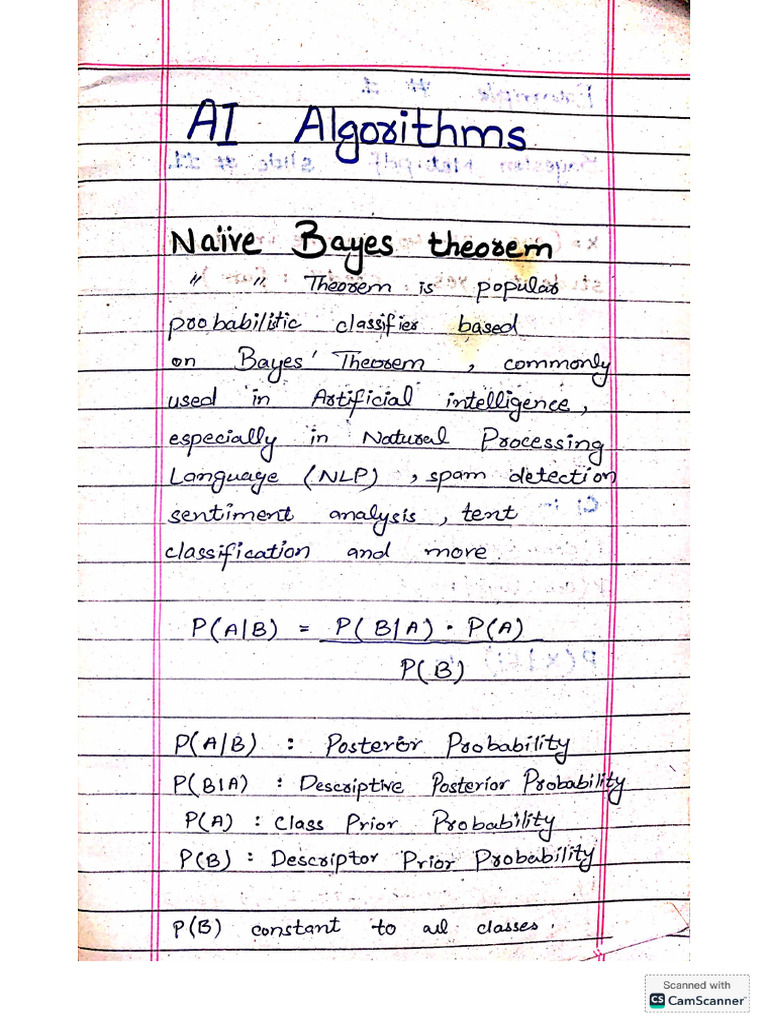 AI Algorithms
Naïve Bayes theorem
" " Theorem is popular
probabilistic classifier based
on Bayes' Theorem , commonly
used in Artificial intelligence,
especially in Natural Processing
Language (NLP) , spam detection
sentiment analysis , text
classification and more
P(A|B) = P(B|A) · P(A)
P(B)
P(A|B) : Posterior Probability
P(B|A) : Descriptive Posterior Probability
P(A) : Class Prior Probability
P(B) : Descriptor Prior Probability
P(B) constant to all classes.
Scanned with
CS CamScanner